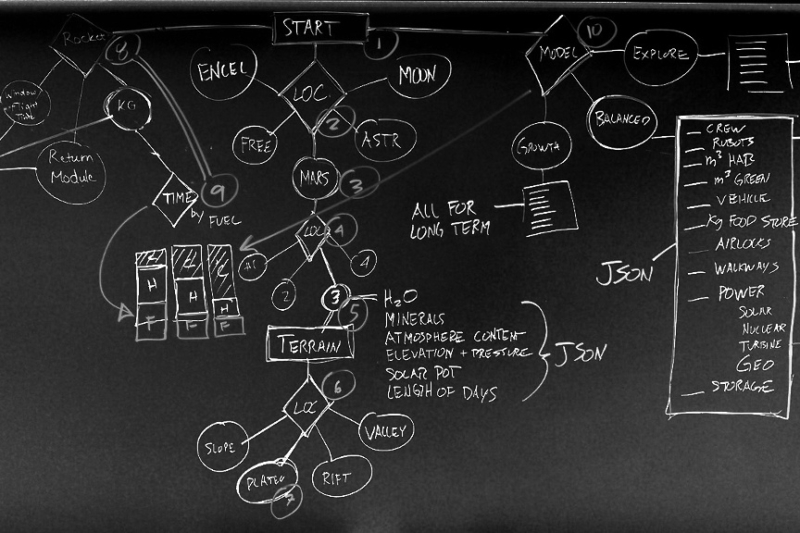 Rocket
8
START
1
MODEL
10
EXPLORE
Window
of Flight
Time
KG
ENCEL
LOC
MOON
2
FREE
ASTR
Return
Module
TIME
by
FUEL
9
MARS
3
GROWTH
BALANCED
ALL FOR
LONG TERM
LOC
4
#1
2
3
4
5
H
F
H
F
H
F
H2O
MINERALS
ATMOSPHERE CONTENT
ELEVATION + PRESSURE
SOLAR POT
LENGTH OF DAYS
JSON
TERRAIN
LOC
6
SLOPE
PLATEU
7
RIFT
VALLEY
JSON
CREW
ROBOTS
m³ HAB
m³ GREEN
VEHICLE
Kg FOOD STORE
AIRLOCKS
WALKWAYS
POWER
SOLAR
NUCLEAR
TURBINE
GEO
STORAGE